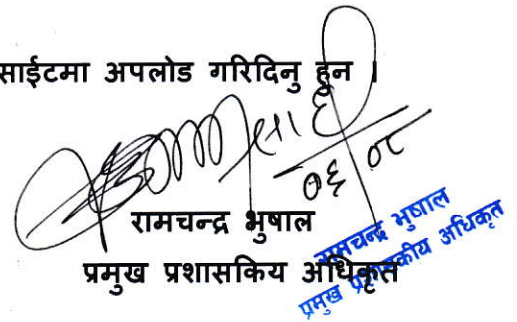 साईटमा अपलोड गरिदिनु हुन ।
०६/०८
रामचन्द्र भुषाल
प्रमुख प्रशासकिय अधिकृत
रामचन्द्र भुषाल
प्रमुख प्रशासकीय अधिकृत